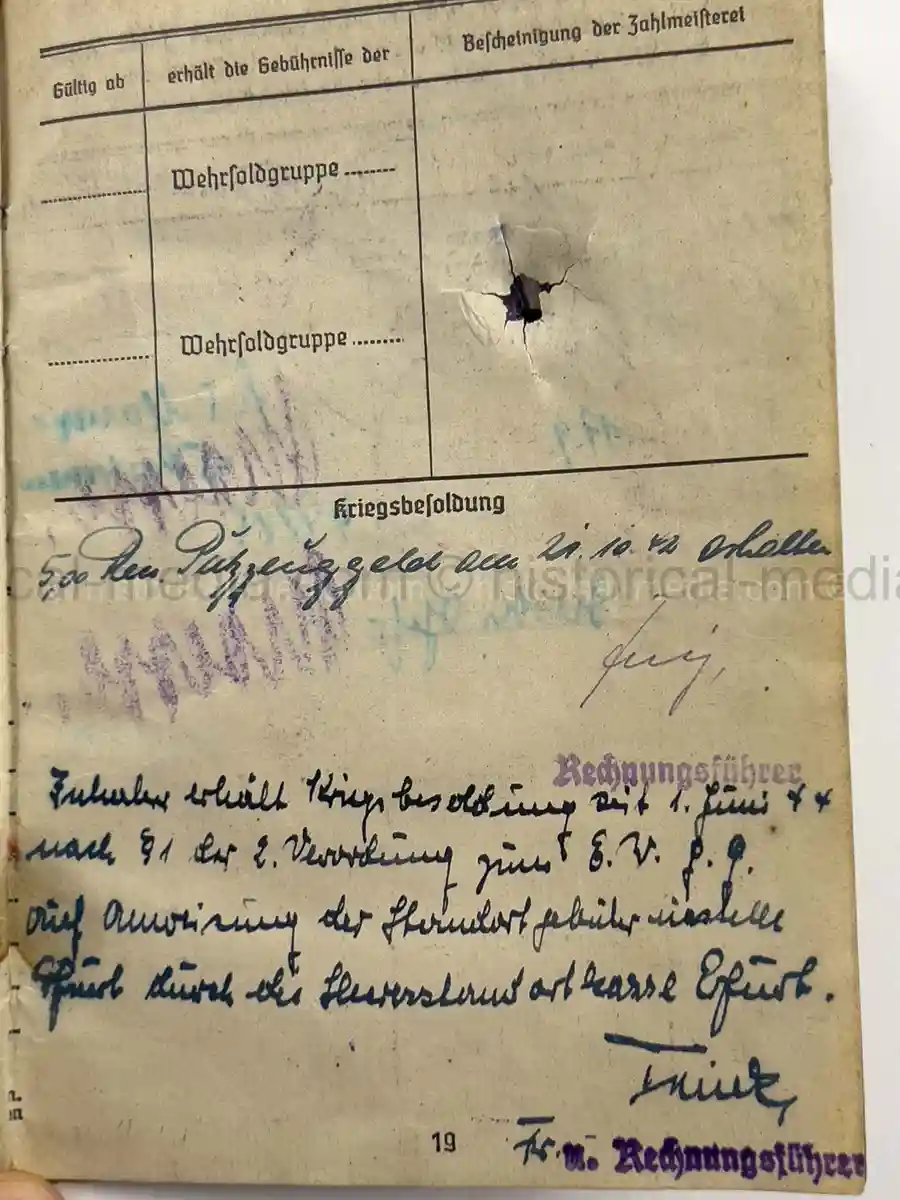 Gültig ab erhält die Gebührnisse der Bescheinigung der Zahlmeisterei
Wehrsoldgruppe
Wehrsoldgruppe
Kriegsbesoldung
5,00 Rm. Putzzeuggeld am 21.10.42 erhalten
car-media.com © historical-media
Rechnungsführer
Inhaber erhält Kriegsbesoldung seit 1. Juni 44
nach §1 der 2. Verordnung zum E. W. F. G.
auf Anweisung der Standortgebührnisstelle
Erfurt durch die Heeresstandortkasse Erfurt.
19
u. Rechnungsführer